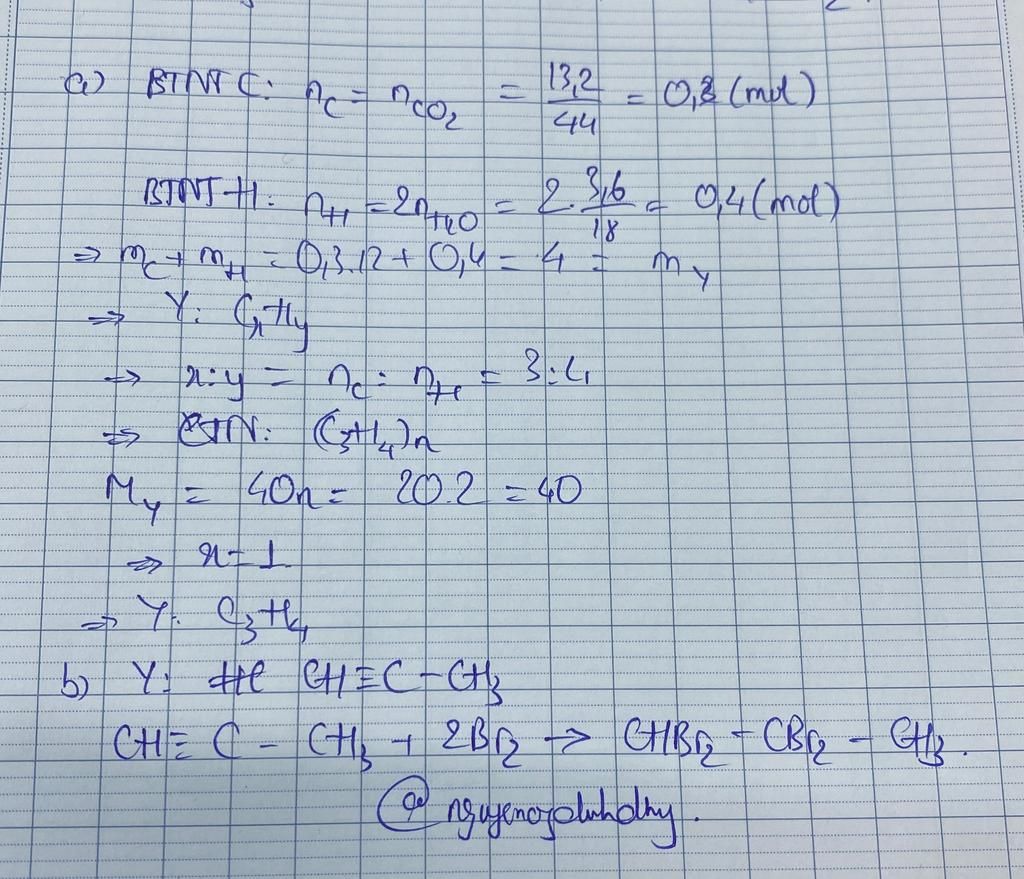 a) BTNT C: n_C = n_CO₂ = 13,2/44 = 0,3 (mol)
BTNT H: n_H = 2n_H₂O = 2. 3,6/18 = 0,4 (mol)
⇒ m_C + m_H = 0,3.12 + 0,4 = 4 = m_Y
⇒ Y: CxHy
⇒ x:y = n_C : n_H = 3:4
⇒ CTN: (C₃H₄)n
M_Y = 40n = 20.2 = 40
⇒ n = 1
⇒ Y: C₃H₄
b) Y: CH≡C-CH₃
CH≡C-CH₃ + 2Br₂ → CHBr₂-CBr₂-CH₃.